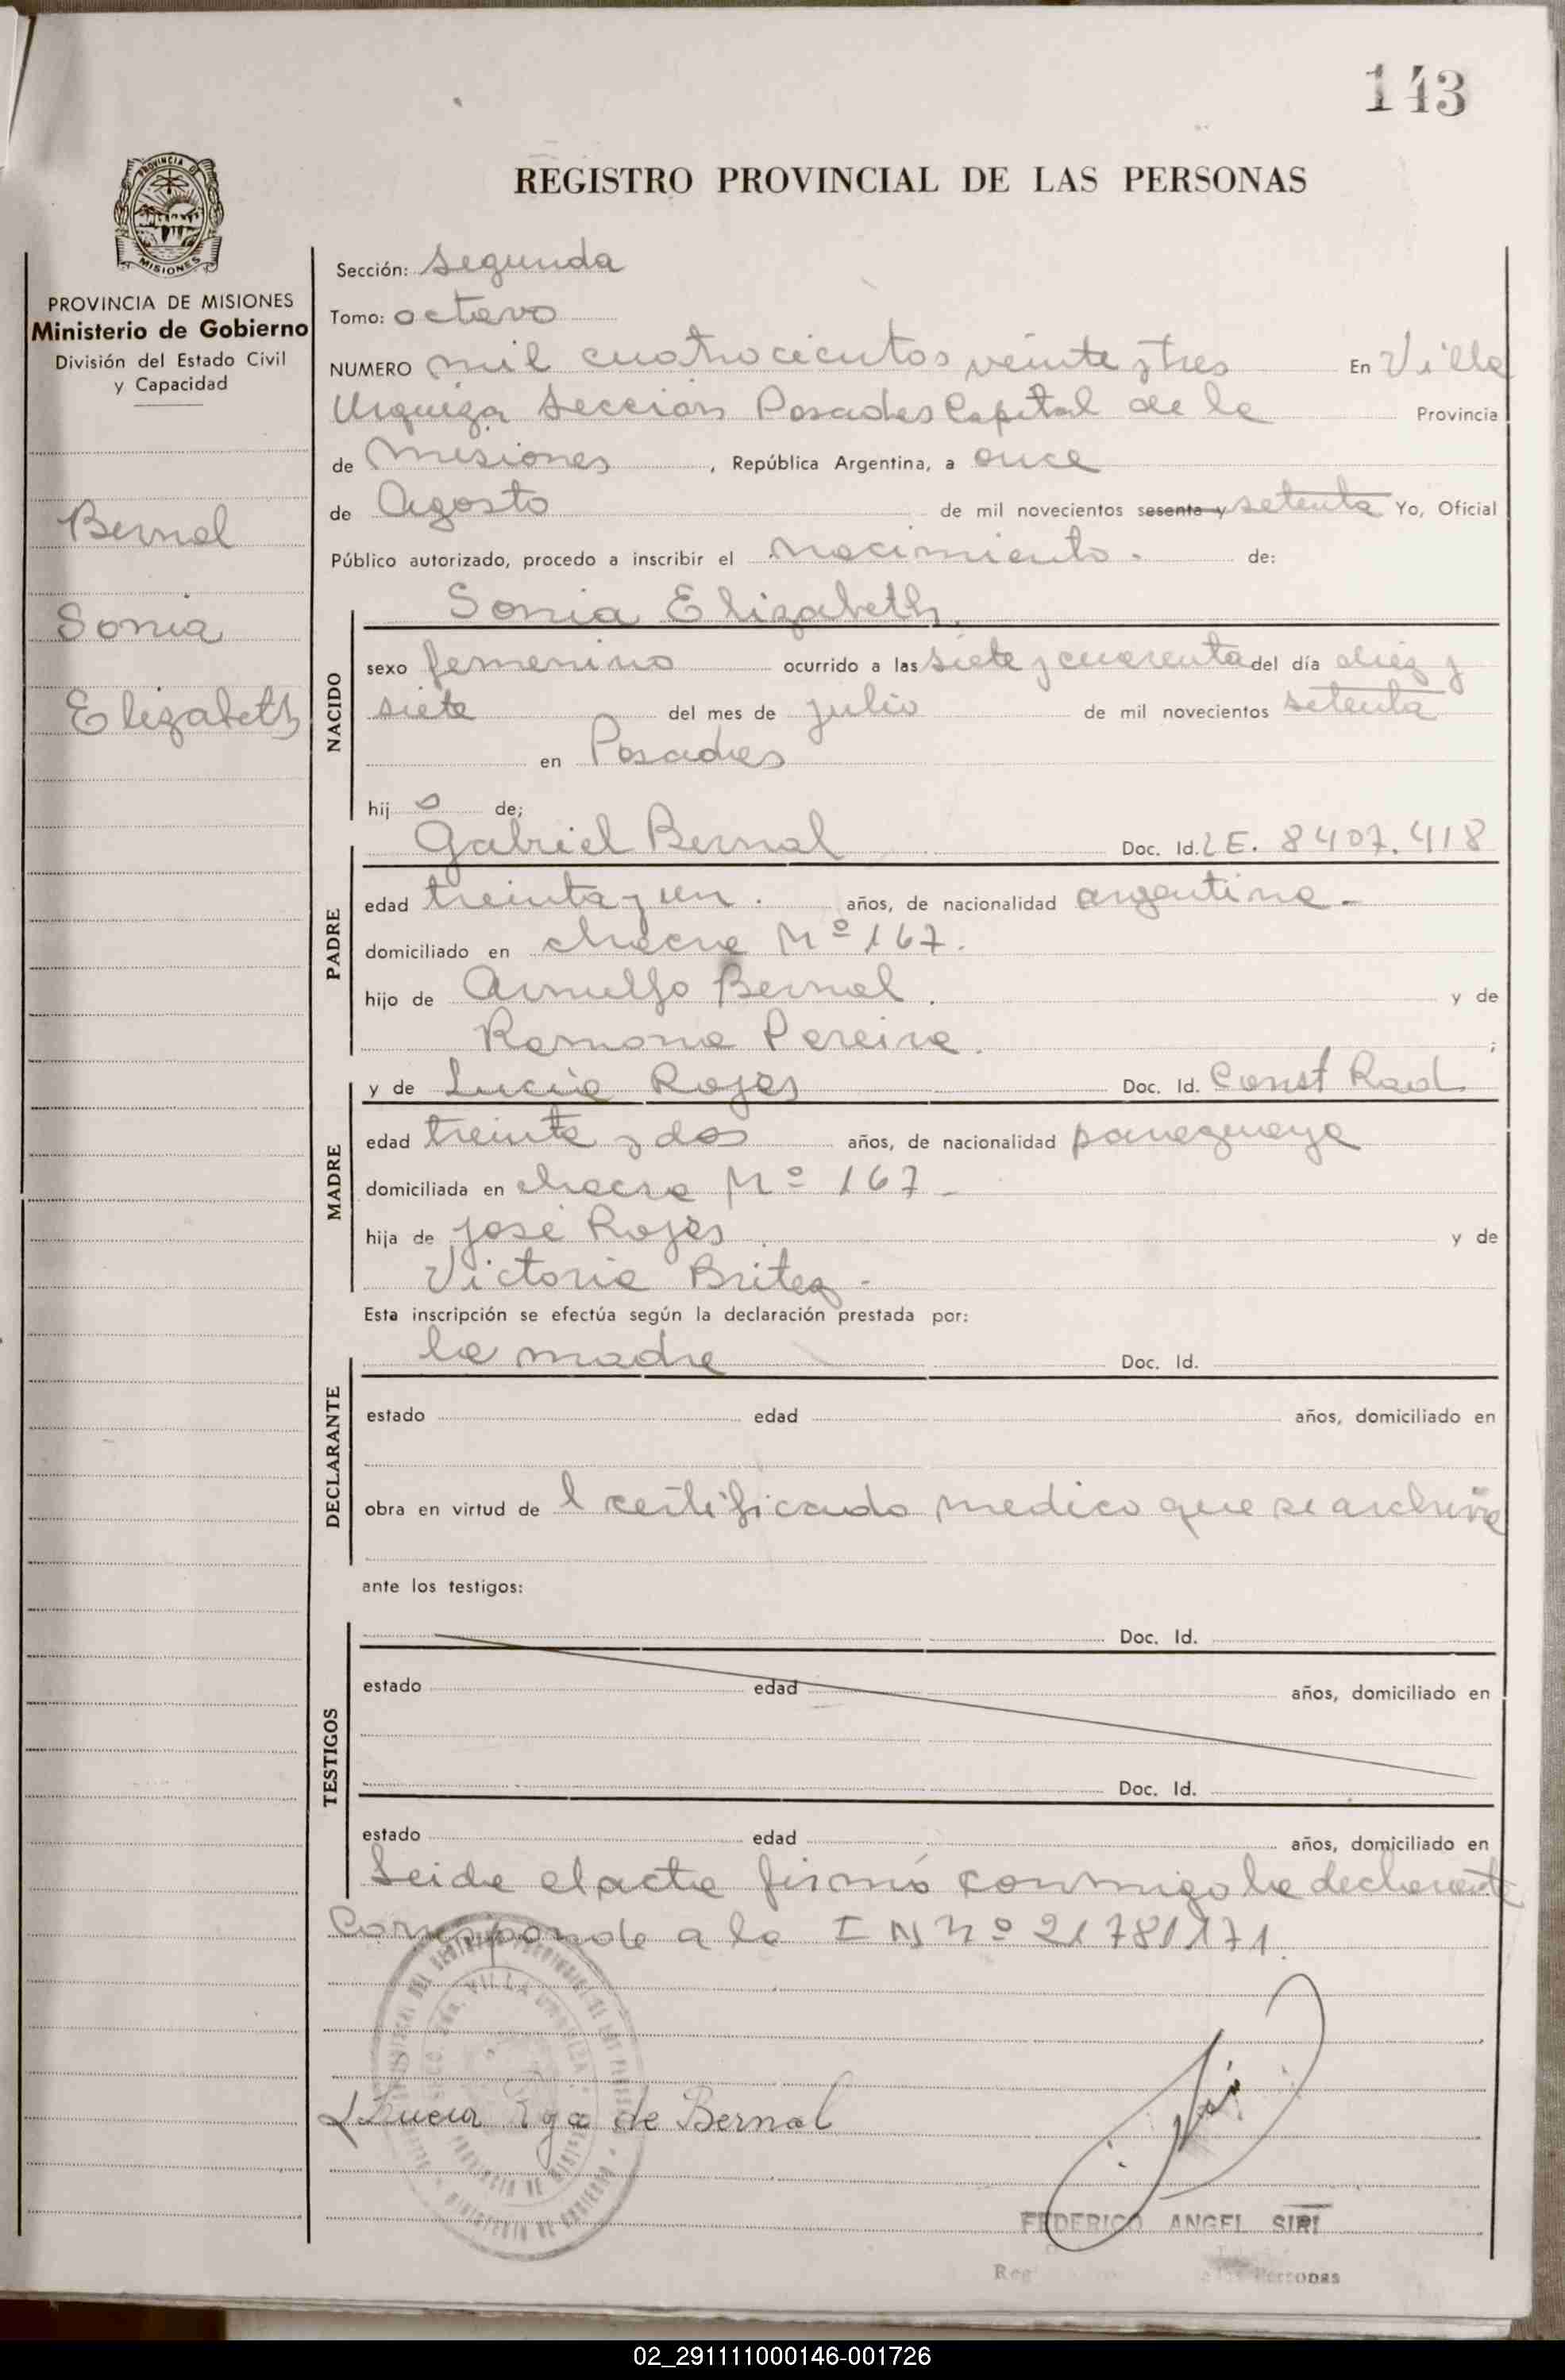 143
REGISTRO PROVINCIAL DE LAS PERSONAS
PROVINCIA DE MISIONES
MISIONES
PROVINCIA DE MISIONES
Ministerio de Gobierno
División del Estado Civil
y Capacidad
Bernal
Sonia
Elizabeth
Sección: Segunda
Tomo: octavo
NUMERO mil cuatrocientos veinte y tres En Villa
Urquiza Sección Posadas Capital de la Provincia
de Misiones, República Argentina, a once
de Agosto de mil novecientos sesenta y setenta Yo, Oficial
Público autorizado, procedo a inscribir el nacimiento. de:
Sonia Elizabeth.
NACIDO
sexo femenino ocurrido a las siete y cuarenta del día diez y
siete del mes de julio de mil novecientos setenta
en Posadas
hij a de;
Gabriel Bernal Doc. Id. LE. 8407.418
PADRE
edad treinta y un. años, de nacionalidad argentina.-
domiciliado en chacra Nº 167.
hijo de Arnulfo Bernal. y de
Ramona Pereira. ;
y de Lucia Rojas Doc. Id. Const Rad
MADRE
edad treinta y dos años, de nacionalidad paraguaya
domiciliada en chacra Nº 167-
hija de José Rojas y de
Victoria Britez -
Esta inscripción se efectúa según la declaración prestada por:
la madre Doc. Id.
DECLARANTE
estado edad años, domiciliado en
obra en virtud de l certificado medico que se archiva
ante los testigos:
Doc. Id.
TESTIGOS
estado edad años, domiciliado en
Doc. Id.
estado edad años, domiciliado en
Leida el acta firmó conmigo la declarante
Corresponde a la I N Nº 21781171.
VILLA URQUIZA
de Bernal
FEDERICO ANGEL SIRI
Personas
02_291111000146-001726